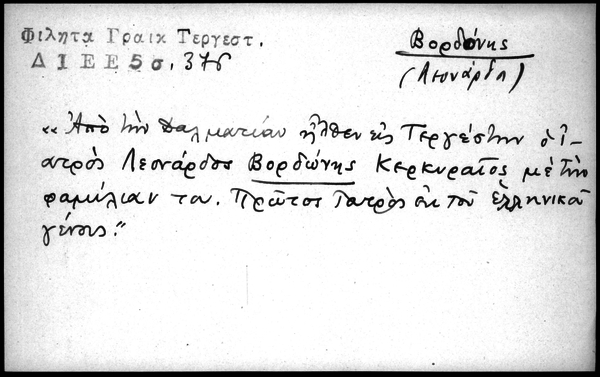 Φιλητα Γραικ Τεργεστ.
ΔΙΕΕ 5σ, 376
Βορδόνης
(Λεονάρδ)
«Ἀπὸ τὴν Δαλματίαν ἦλθεν εἰς Τεργέστην ὁ ἰ-
ατρὸς Λεονάρδος Βορδώνης Κερκυραῖος μὲ τὴν
φαμίλιαν του. Πρῶτος Ἰατρὸς ἐκ τοῦ ἑλληνικοῦ
γένους."